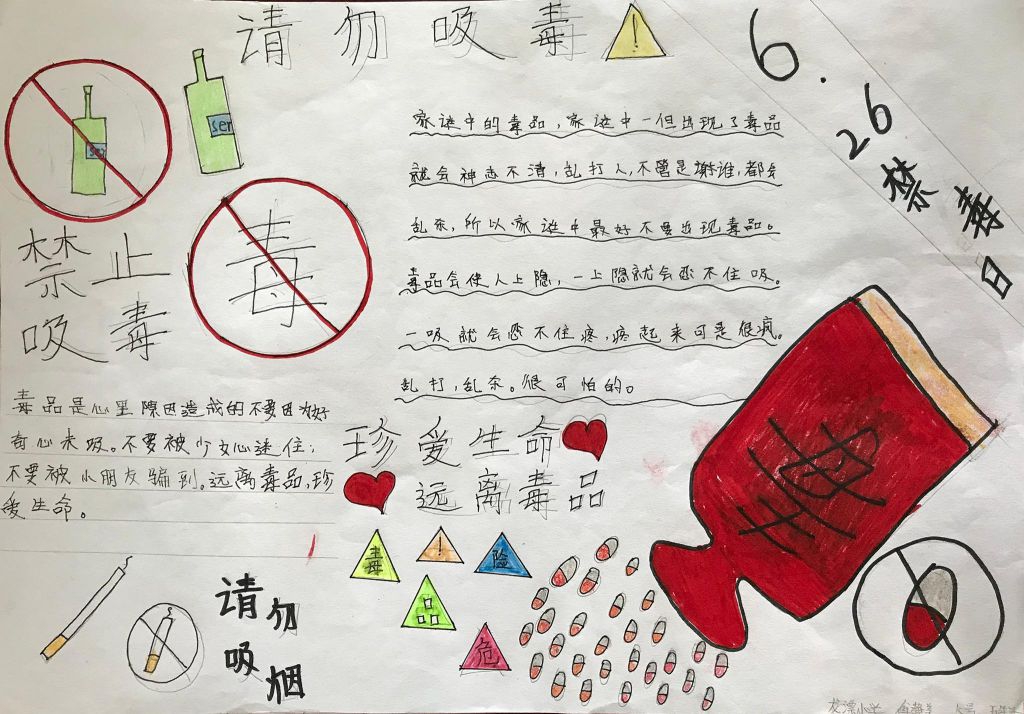 请勿吸毒
!
6.26禁毒日
ser
ser
毒
禁止
吸毒
家谁中的毒品,家谁中一但出现了毒品
就会神志不清,乱打人,不管是谢谁,都会
乱杀,所以家谁中最好不要出现毒品。
毒品会使人上隐,一上隐就会忍不住吸。
一吸就会忍不住疼,疼起来可是很疯。
乱打,乱杀。很可怕的。
毒品是心里原因造成的不要因为好
奇心来吸。不要被少女心迷住;
不要被小朋友骗到。远离毒品,珍
爱生命。
珍爱生命
远离毒品
毒
!
险
品
危
请勿
吸烟
龙潭小学